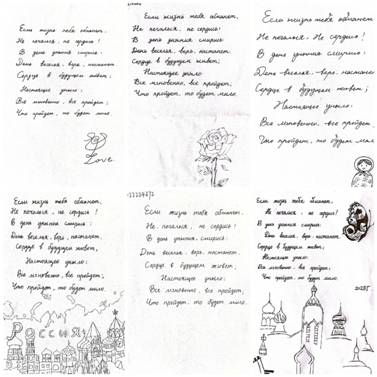 Если жизнь тебя обманет,
Не печалься, не сердись!
В день уныния смирись:
День веселья, верь, настанет.
Сердце в будущем живет;
Настоящее уныло:
Все мгновенно, все пройдет;
Что пройдет, то будет мило.
Love
Если жизнь тебя обманет,
Не печалься, не сердись!
В день уныния смирись:
День веселья, верь, настанет.
Сердце в будущем живет;
Настоящее уныло:
Все мгновенно, все пройдет,
Что пройдет, то будет мило.
Если жизнь тебя обманет.
Не печалься. Не сердись!
В день уныния
День веселья, верь,
Сердце в будущем живет;
Настоящее уныло:
Все мгновенно, все пройдет,
Что пройдет, то будет
Если жизнь тебя обманет,
Не печалься, не сердись!
В день уныния смирись:
День веселья, верь, настанет.
Сердце в будущем живет,
Настоящее уныло:
Все мгновенно, все пройдет;
Что пройдет, то будет мило.
РОССИЯ
Если жизнь тебя обманет,
Не печалься, не сердись!
В день уныния смирись:
День веселья, верь, настанет.
Сердце в будущем живет;
Настоящее уныло:
Все мгновенно, все пройдет;
Что пройдет, то будет мило.
Если жизнь тебя обманет,
Не печалься, не сердись!
В день уныния смирись:
День веселья, верь, настанет.
Сердце в будущем живет;
Настоящее уныло:
Все мгновенно, все пройдет;
Что пройдет, то будет мило.